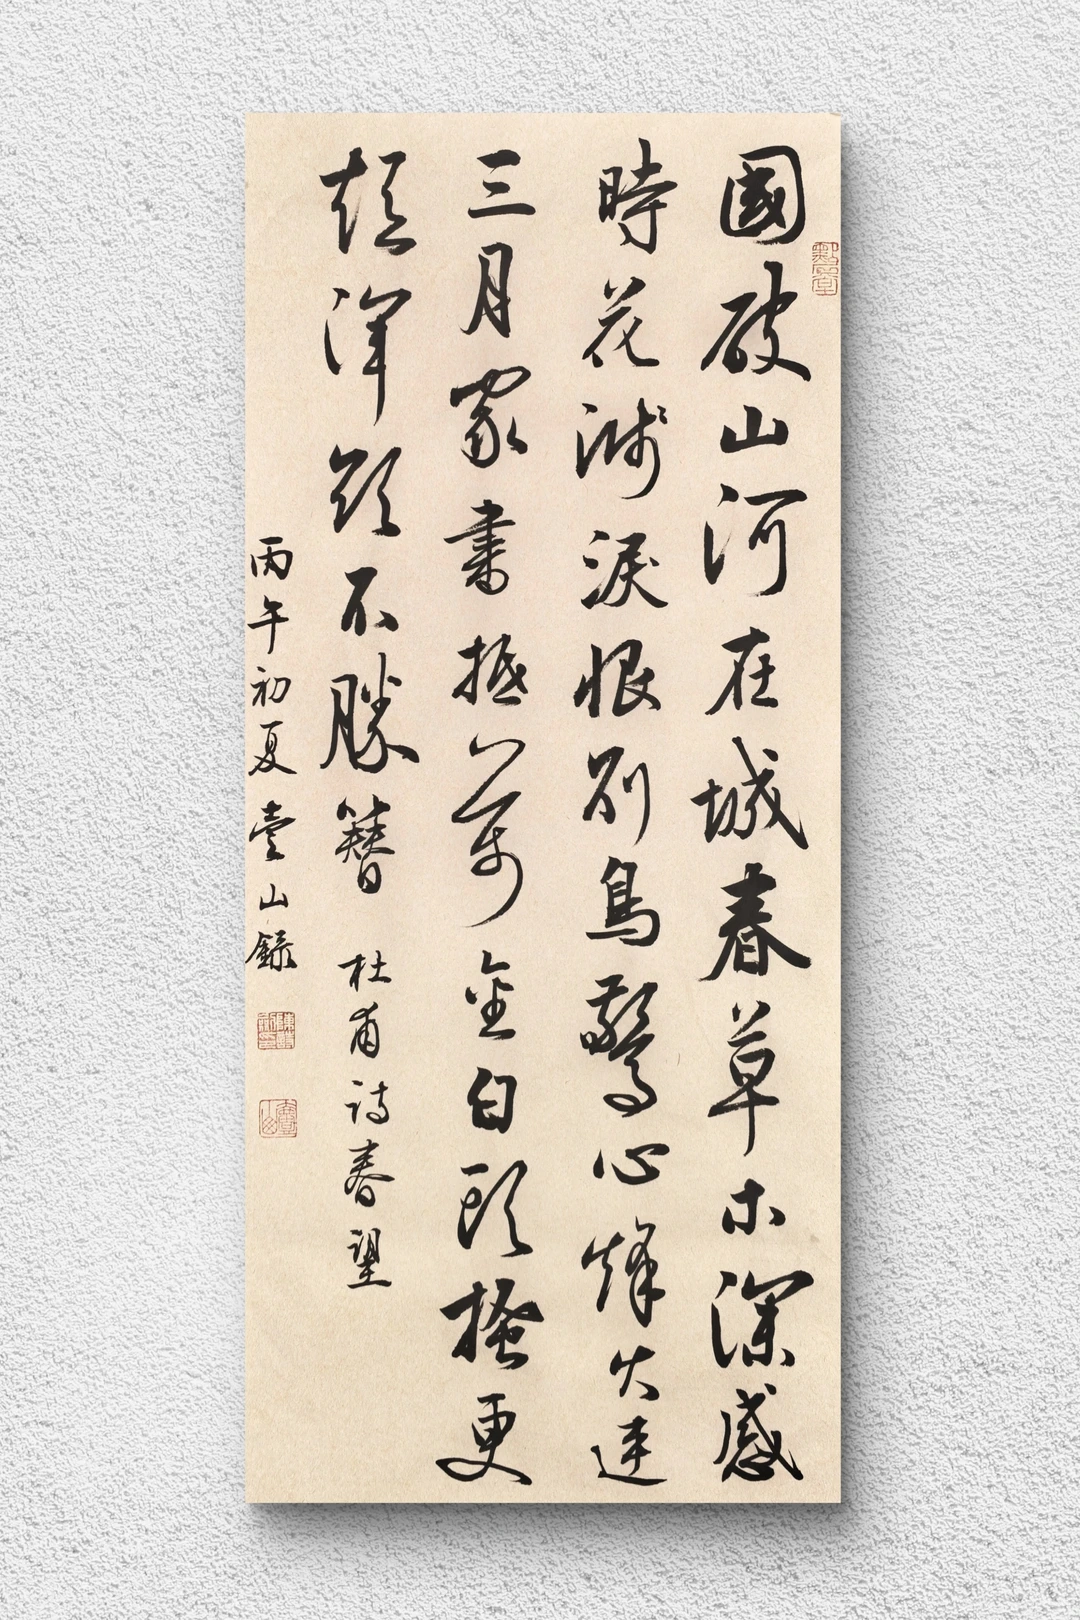 國破山河在城春草木深感
時花濺淚恨別鳥驚心烽火連
三月家書抵萬金白頭搔更
短渾欲不勝簪 杜甫詩春望
丙午初夏壹山錄